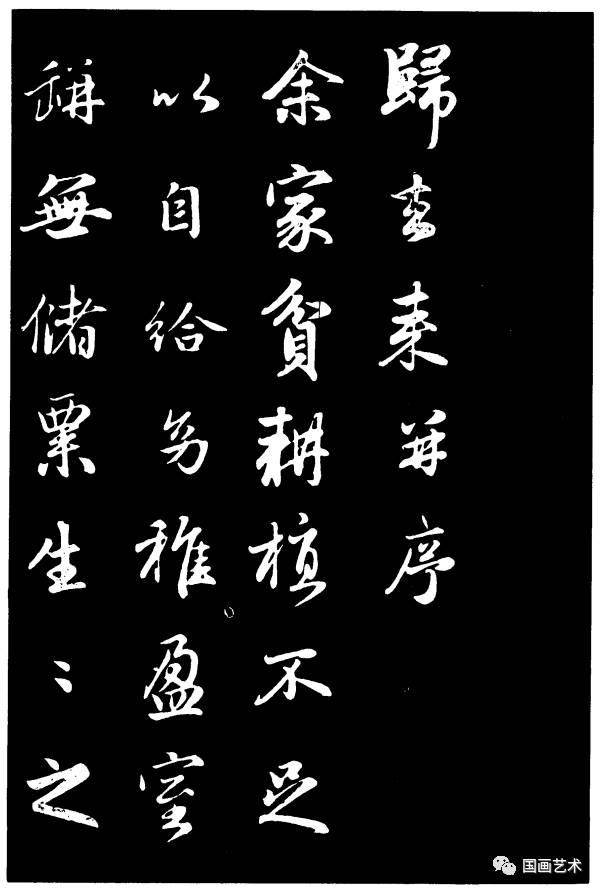 歸去來并序
余家貧耕植不足
以自給幼稚盈室
缾無儲粟生〻之
国画艺术